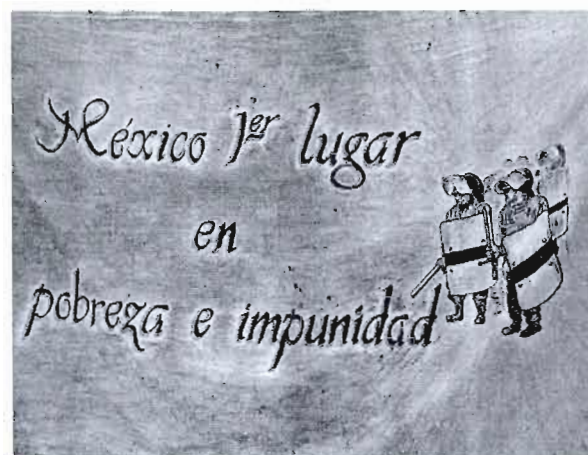 México 1er lugar
en
pobreza e impunidad